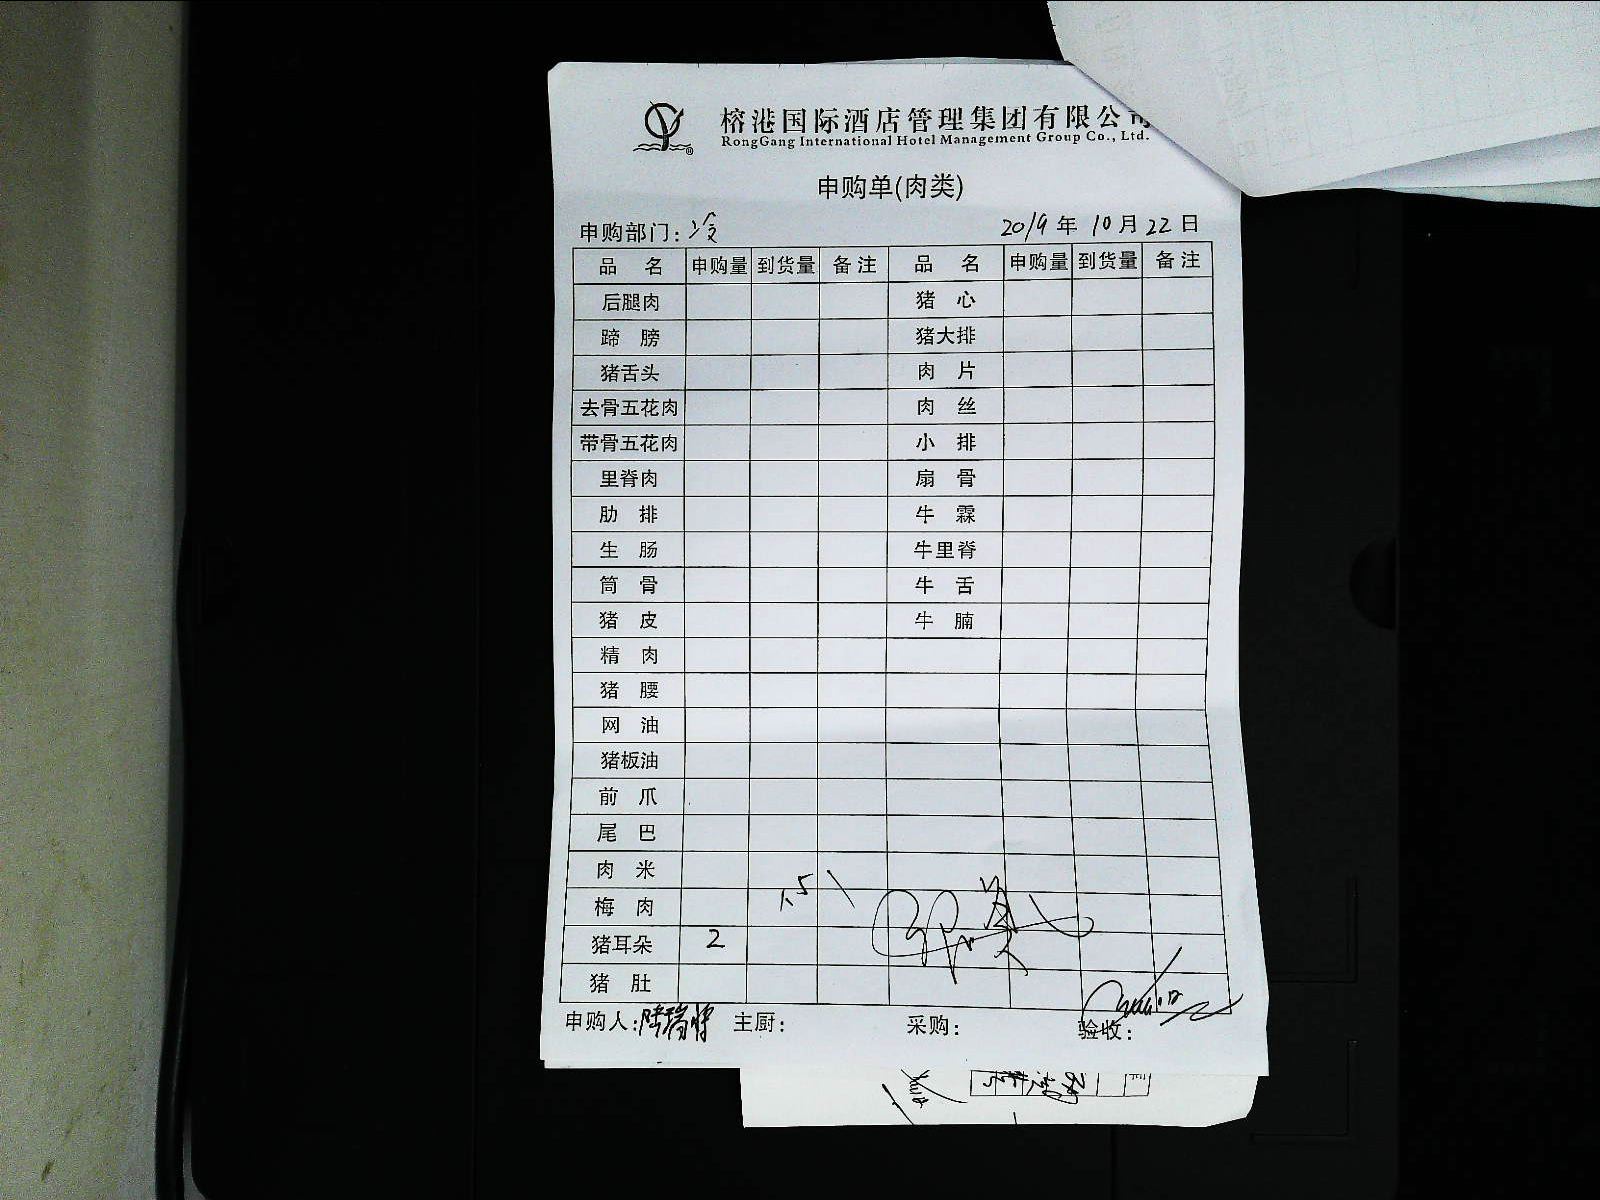 榕港国际酒店管理集团有限公司
RongGang International Hotel Management Group Co., Ltd.
申购单(肉类)
申购部门: 2019年 10月 22日
品 名 申购量 到货量 备注 品 名 申购量 到货量 备注
后腿肉 猪 心
蹄 膀 猪大排
猪舌头 肉 片
去骨五花肉 肉 丝
带骨五花肉 小 排
里脊肉 扇 骨
肋 排 牛 霖
生 肠 牛里脊
筒 骨 牛 舌
猪 皮 牛 腩
精 肉
猪 腰
网 油
猪板油
前 爪
尾 巴
肉 米
梅 肉 1.5
猪耳朵 2
猪 肚
申购人: 主厨: 采购: 验收: